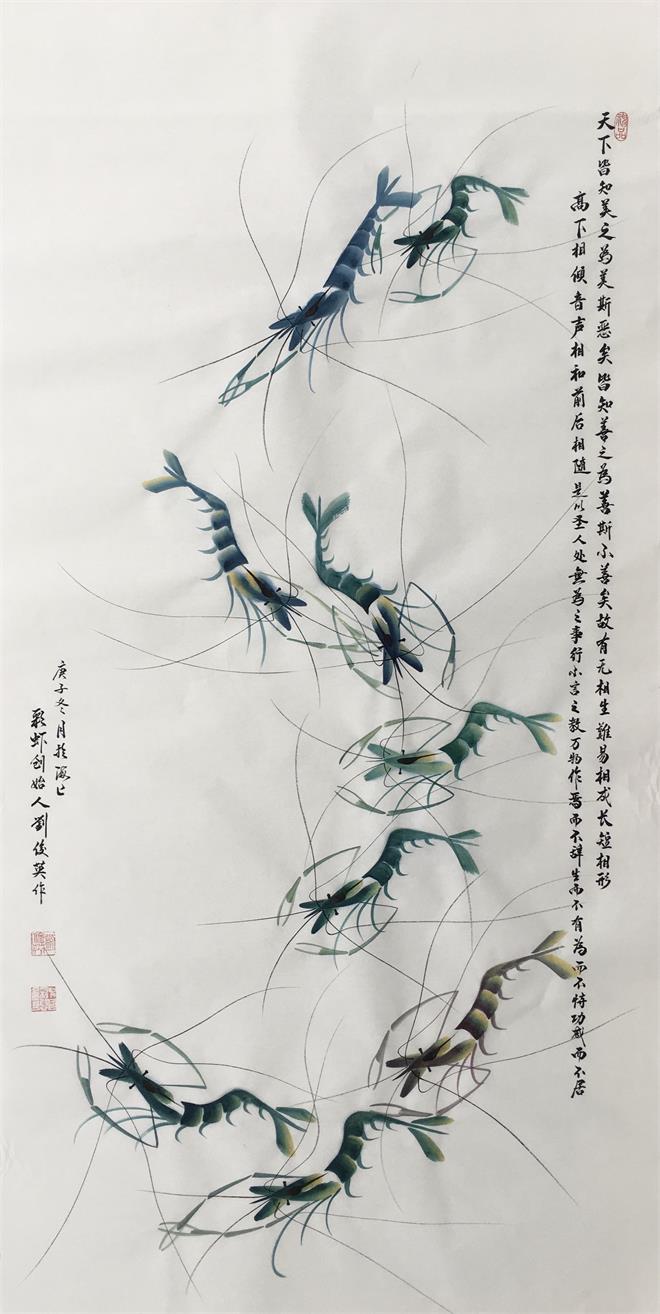 天下皆知美之為美斯恶矣皆知善之為善斯不善矣故有无相生難易相成长短相形
高下相倾音声相和前后相随是以圣人处無為之事行不言之教万物作焉而不辞生而不有為而不恃功成而不居
庚子冬月於海上
彩虾创始人劉俊英作